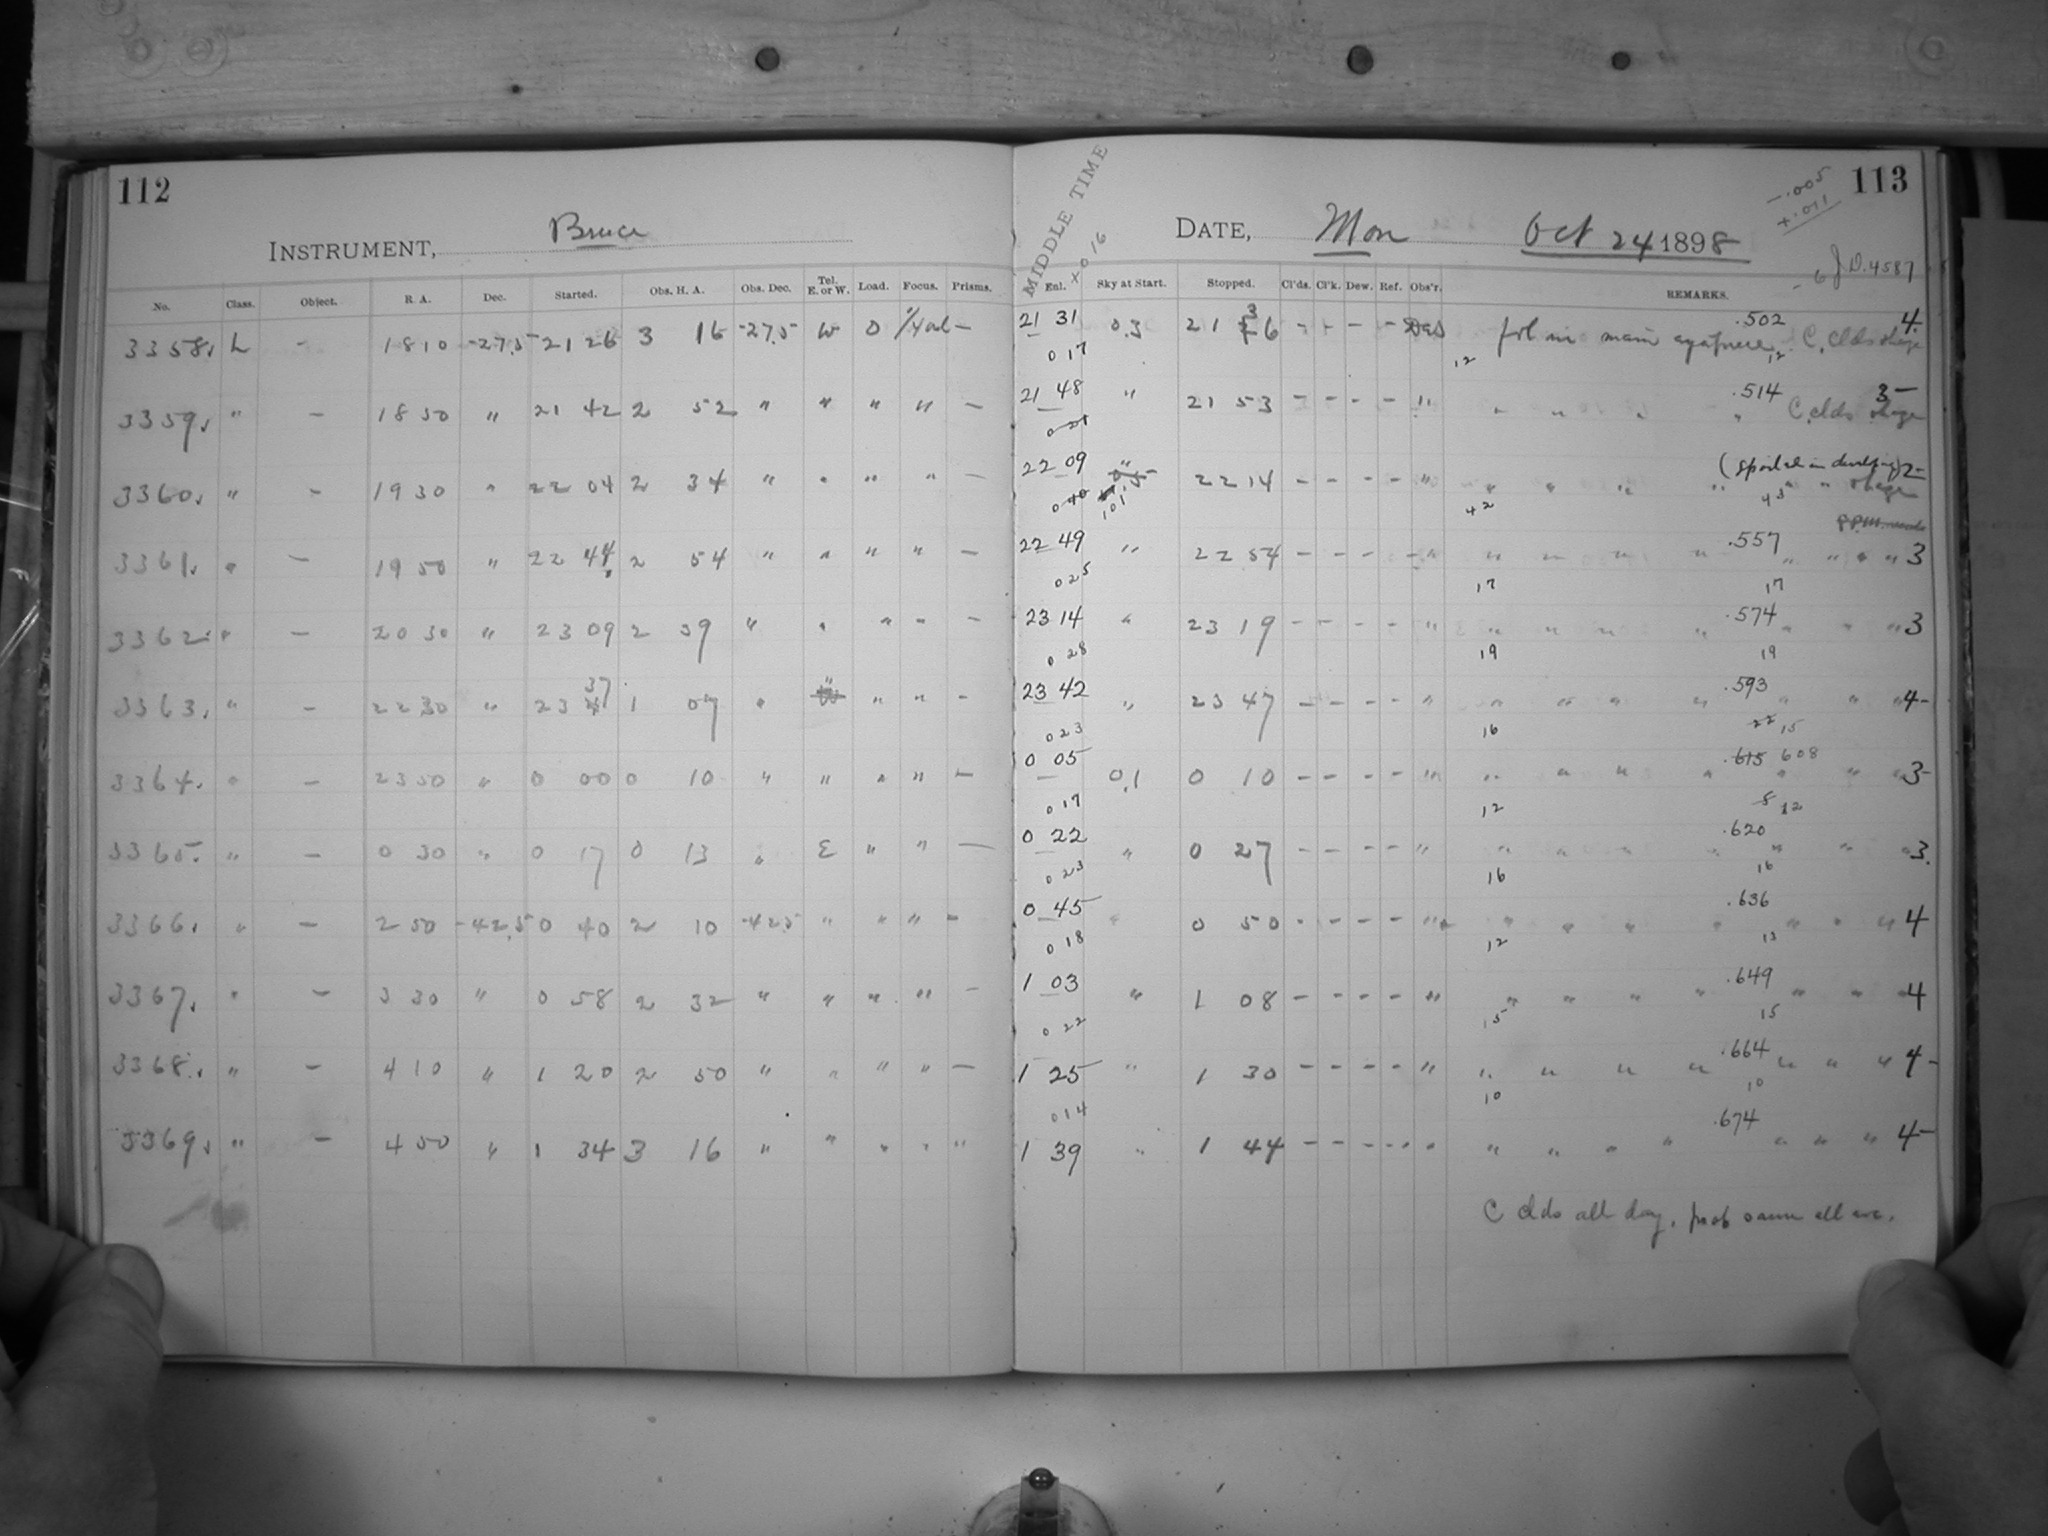 112
INSTRUMENT, Bruce
No. Class. Object. R. A. Dec. Started. Obs. H. A. Obs. Dec. Tel. E. or W. Load. Focus. Prisms.
3358. L - 18 10 -27.5 21 26 3 16 -27.5 W 0 -
3359. " - 18 50 " 21 42 2 52 " " " " -
3360. " - 19 30 " 22 04 2 34 " " " " -
3361. " - 19 50 " 22 44 2 54 " " " " -
3362. " - 20 30 " 23 09 2 39 " " " " -
3363. " - 22 30 " 23 37 1 07 " " " " -
3364. " - 23 50 " 0 00 0 10 " " " " -
3365. " - 0 30 " 0 17 0 13 " E " " -
3366. " - 2 50 -42.5 0 40 2 10 -42.5 " " " -
3367. " - 3 30 " 0 58 2 32 " " " " -
3368. " - 4 10 " 1 20 2 50 " " " " -
3369. " - 4 50 " 1 34 3 16 " " " " "
113
-.005
+.011
MIDDLE TIME
+016
DATE, Mon Oct 24 1898
J.D. 4587
Enl. Sky at Start. Stopped. Cl'ds. Cl'k. Dew. Ref. Obs'r. REMARKS.
21 31 0.3 21 36 - - - - .502 4.
in main C. clds
017 12 12
21 48 " 21 53 - - - - " .514 3-
" " " " C. clds
021
22 09 " 22 14 - - - - " (spoiled in developing) 2-
040 42 43
22 49 " 22 54 - - - - " " " " " .557 " " " " 3
025 17 17
23 14 " 23 19 - - - - " " " " " .574 " " " 3
028 19 19
23 42 " 23 47 - - - - " " " " " .593 " " " 4-
023 16 22 15
0 05 0.1 0 10 - - - - " " " " " .615 608 " " " 3-
017 12 5 12
0 22 " 0 27 - - - - " " " " " .620 " " " 3.
023 16 16
0 45 " 0 50 - - - - " " " " " .636 " " " 4
018 12 13
1 03 " 1 08 - - - - " " " " " .649 " " " 4
022 15 15
1 25 " 1 30 - - - - " " " " " .664 " " " 4-
014 10 10
1 39 " 1 44 - - - - " " " " " .674 " " " 4-
C clds all day, prob same all eve.